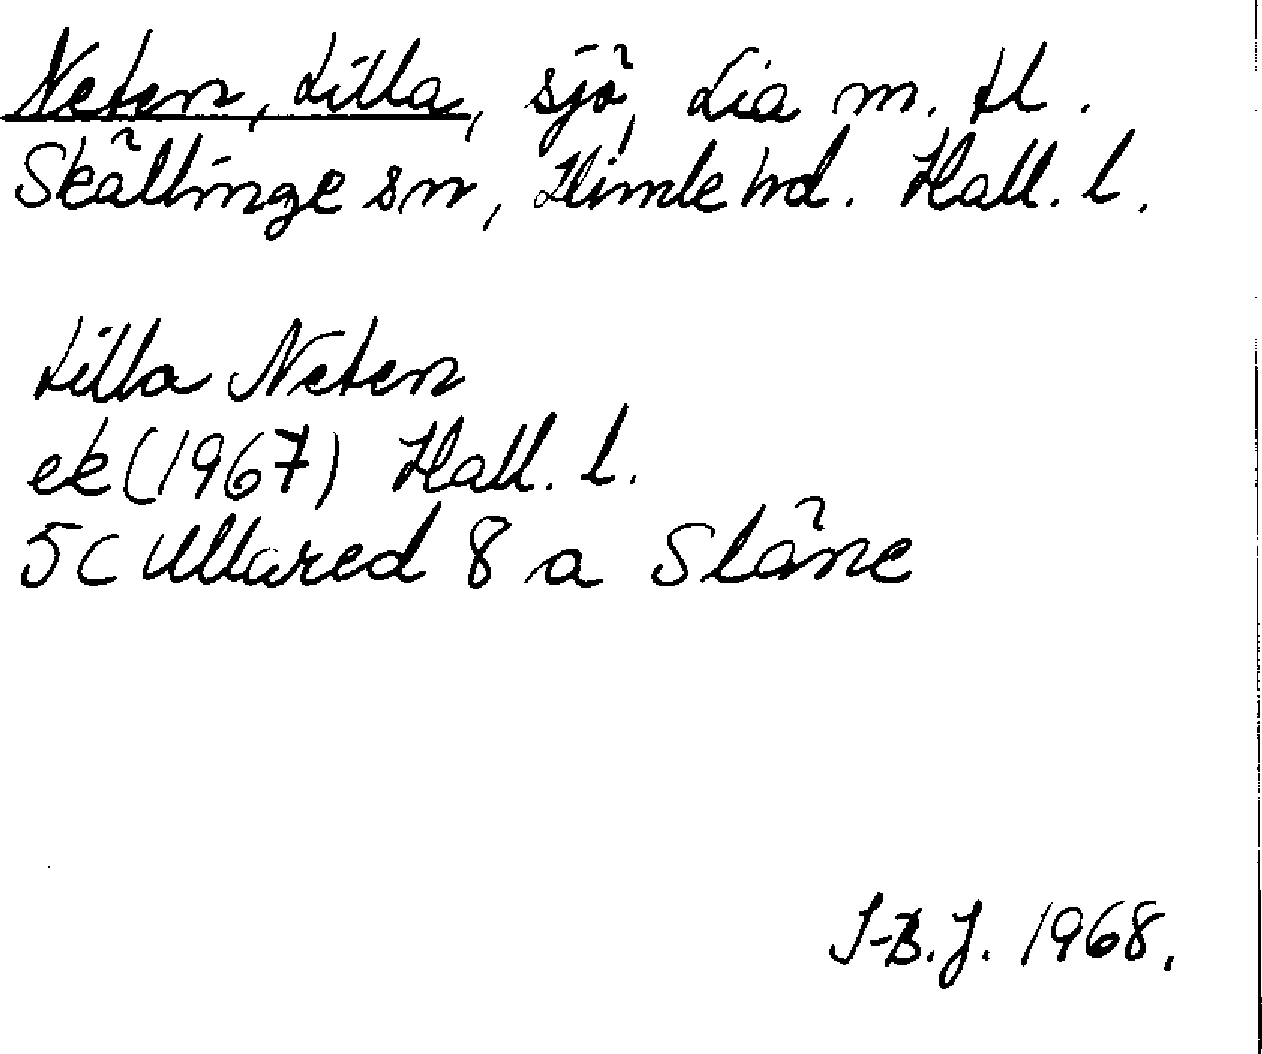 Neten, Lilla, sjö, Lia m. fl.
Skällinge sn, Himle hd. Hall. l.
Lilla Neten
ek (1967) Hall. l.
5C Ullared 8 a Slåne
J-B.J. 1968.